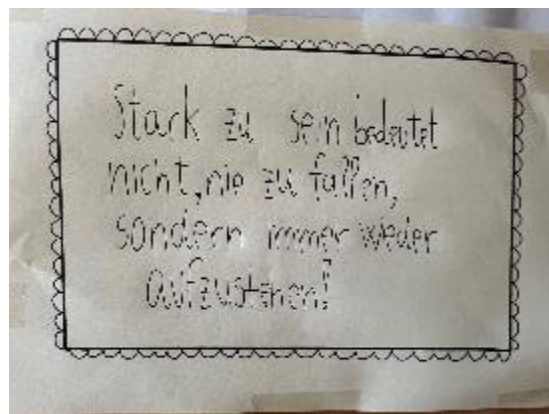 Stark zu sein bedeutet
nicht, nie zu fallen,
sondern immer wieder
aufzustehen!